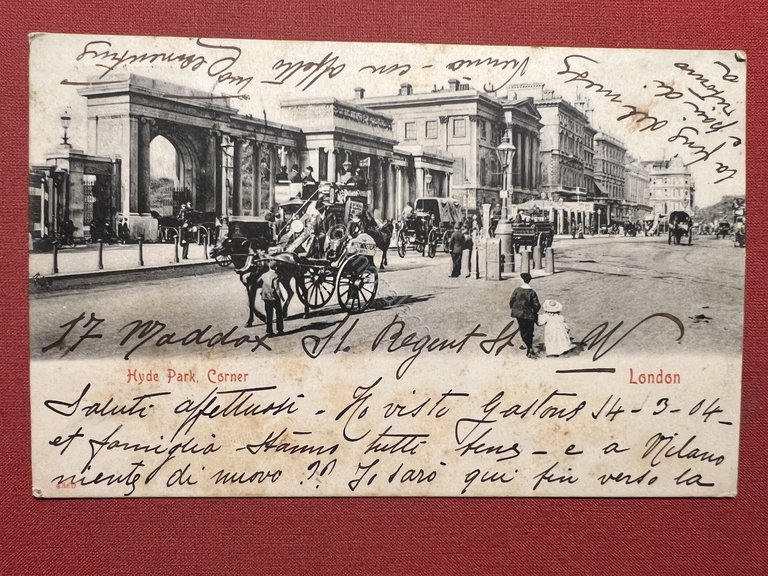 17 Maddox St. Regent St. W
Hyde Park, Corner
London
Saluti affettuosi - Ho visto Gastone 14-3-04-
et famiglia - Stanno tutti bene - e a Milano
niente di nuovo ?? Io sarò qui fin verso la
la fine del mese
e poi di
ritorno a
Vienna - con affetto tuo